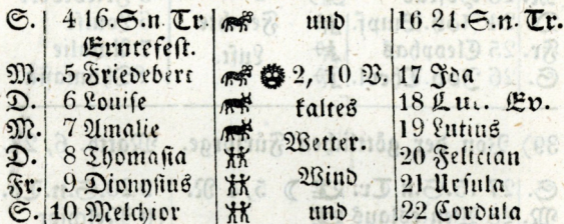 S. 4 16. S. n. Tr. und 16 21. S. n. Tr.
Erntefest.
M. 5 Friedebert 2, 10 V. 17 Ida
D. 6 Louise kaltes 18 Luc. Ev.
M. 7 Amalie Wetter. 19 Lutius
D. 8 Thomasia 20 Felician
Fr. 9 Dionysius Wind 21 Ursula
S. 10 Melchior und 22 Cordula